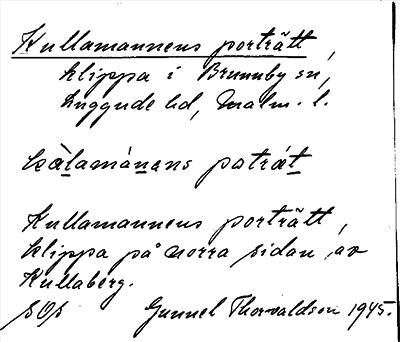 Kullamannens porträtt,
klippa i Brunnby sn,
Luggude hd, Malm. l.
kàlamánens patrǽt
Kullamannens porträtt,
klippa på norra sidan av
Kullaberg.
SOS Gunnel Thorvaldson 1945.